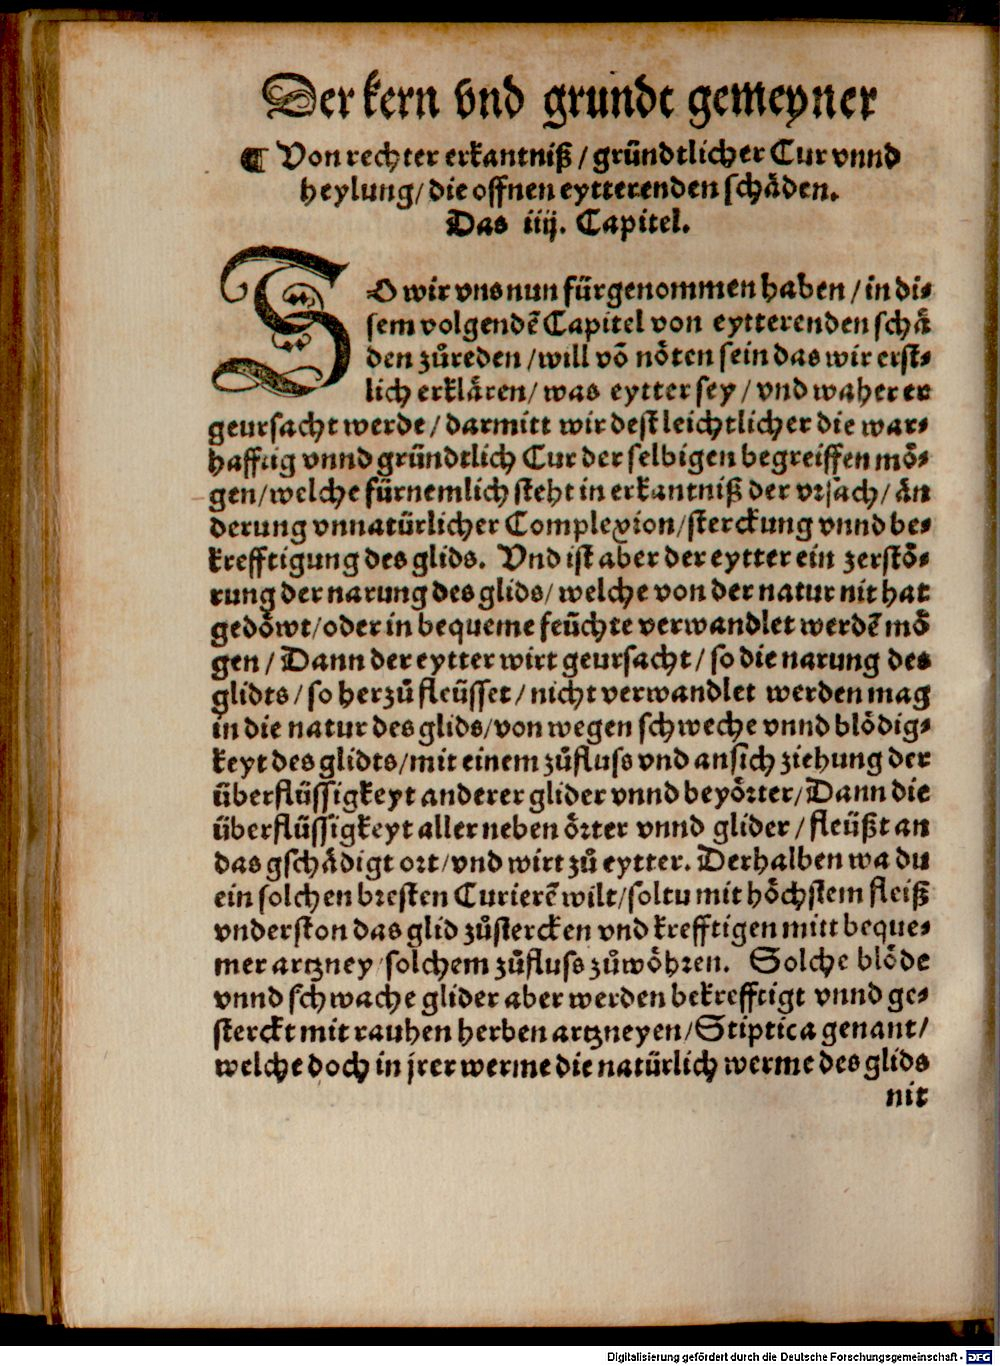 Der kern vnd grundt gemeyner
¶ Von rechter erkantniß / gründtlicher Cur vnnd
heylung / die offnen eytterenden schäden.
Das iiij. Capitel.
SO wir vns nun fürgenommen haben / in di⸗
sem volgendẽ Capitel von eytterenden schä
den zůreden / will võ nöten sein das wir erst⸗
lich erklären / was eytter sey / vnd waher er
geursacht werde / darmitt wir dest leichtlicher die war⸗
hafftig vnnd gründtlich Cur der selbigen begreiffen mö⸗
gen / welche fürnemlich steht in erkantniß der vrsach / än
derung vnnatürlicher Complexion / sterckung vnnd be⸗
krefftigung des glids. Vnd ist aber der eytter ein zerstö⸗
rung der narung des glids / welche von der natur nit hat
gedöwt / oder in bequeme feüchte verwandlet werdẽ mö
gen / Dann der eytter wirt geursacht / so die narung des
glidts / so herzů fleüsset / nicht verwandlet werden mag
in die natur des glids / von wegen schweche vnnd blödig⸗
keyt des glidts / mit einem zůfluss vnd ansich ziehung der
überflüssigkeyt anderer glider vnnd beyörter / Dann die
überflüssigkeyt aller neben örter vnnd glider / fleüßt an
das gschädigt ort / vnd wirt zů eytter. Derhalben wa du
ein solchen bresten Curierẽ wilt / soltu mit höchstem fleiß
vnderston das glid zůstercken vnd krefftigen mitt beque⸗
mer artzney / solchem zůfluss zůwöhren. Solche blöde
vnnd schwache glider aber werden bekrefftigt vnnd ge⸗
sterckt mit rauhen herben artzneyen / Stiptica genant /
welche doch in jrer werme die natürlich werme des glids
nit
Digitalisierung gefördert durch die Deutsche Forschungsgemeinschaft - DFG